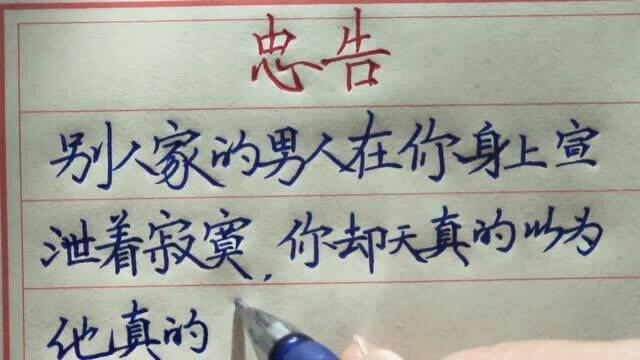 忠告
别人家的男人在你身上宣
泄着寂寞,你却天真的以为
他真的